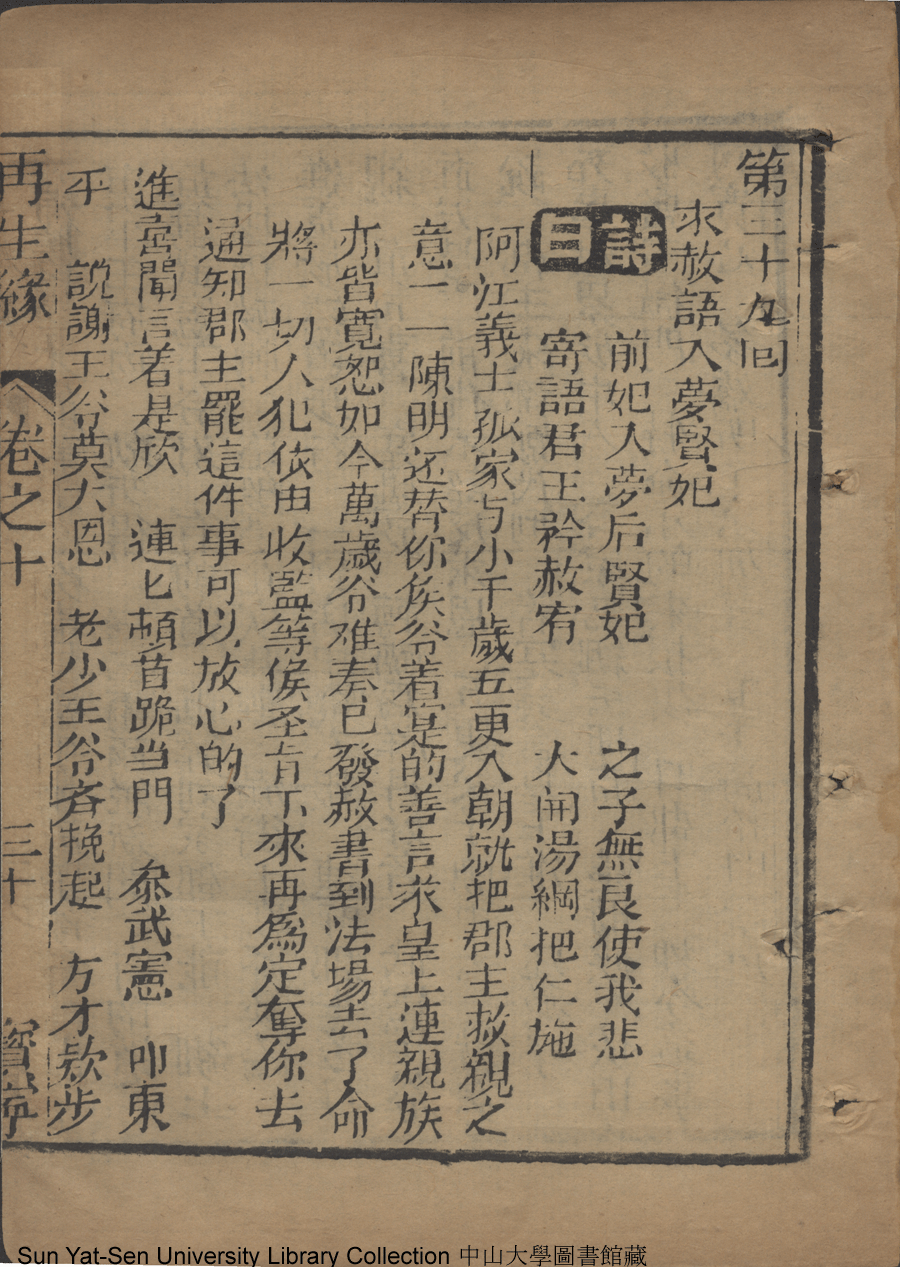 第三十九回
求赦語入夢賢妃
詩曰
前妃入夢后賢妃 之子無良使我悲
寄語君王矜赦宥 大開湯網把仁施
阿江義士孤家与小千歲五更入朝就把郡主救親之
意一一陳明还替你侯爷着寔的善言求皇上連親族
亦皆寬恕如今萬歲爷准奏已發赦書到法場去了命
將一切人犯依由收監等候圣旨下來再爲定奪你去
通知郡主罷這件事可以放心的了
進喜聞言着是欣 連匕頓首跪当門 叅武憲 叩東
平 說謝王爷莫大恩 老少王爷齐挽起 方才欵步
再生緣 卷之十 三十 寳寧
Sun Yat-Sen University Library Collection 中山大學圖書館藏